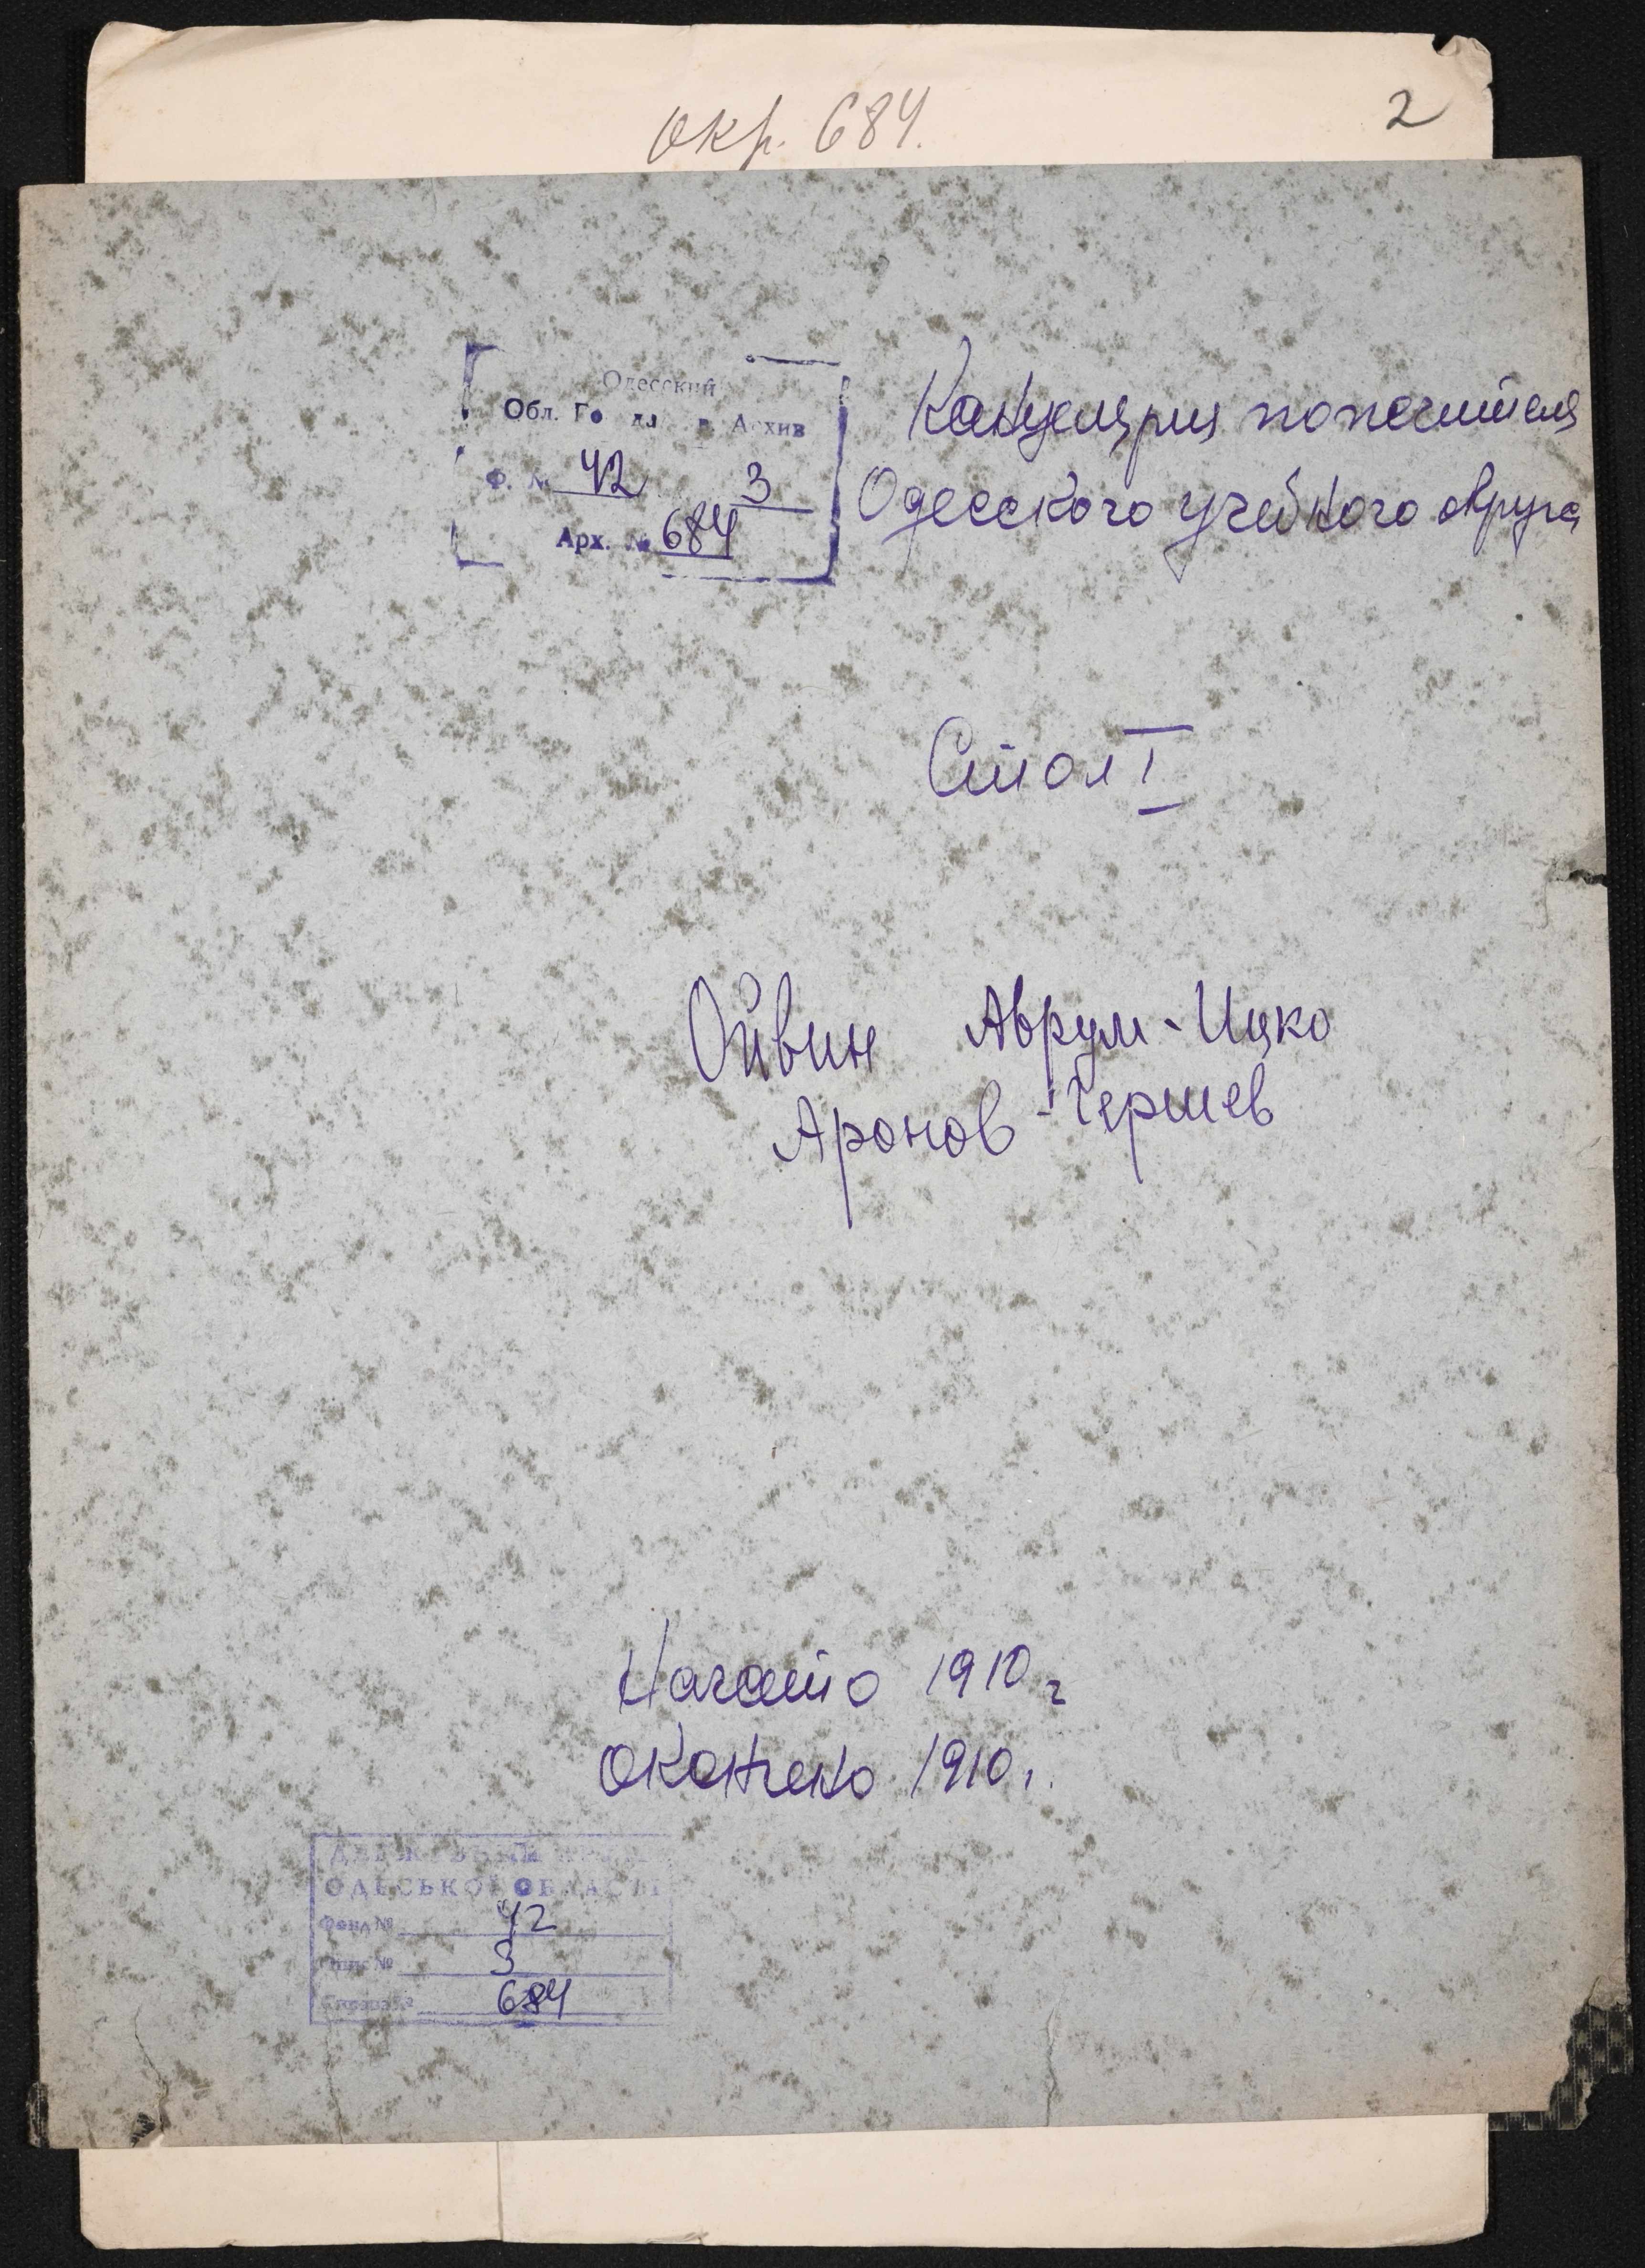 окр. 684.
2
Одесский
Обл. Архив
Ф. № 42 3
Арх. № 684
Канцелярия попечителя
Одесского учебного округа
Стол I
Ойвин Аврум-Ицко
Аронов-Гершев
Начато 1910 г
Окончено 1910 г.
ОДЕСЬКОЇ ОБЛАСТІ
Фонд № 42
Опис № 3
Справа № 684